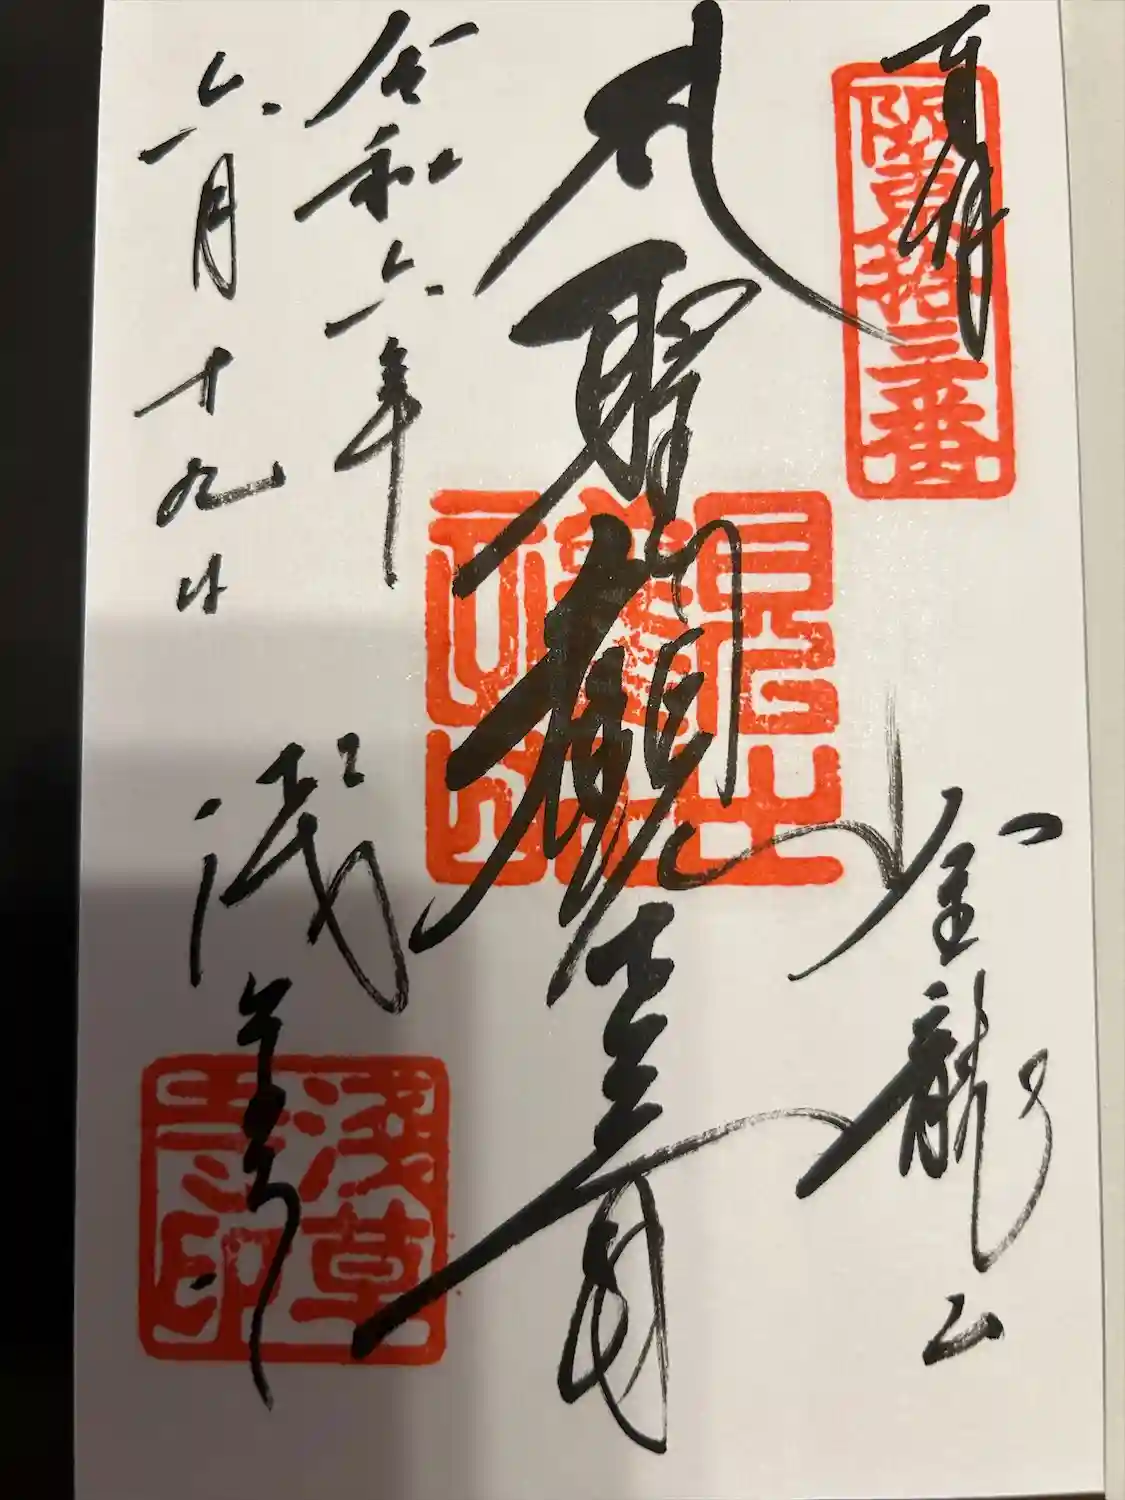 奉拝
阪東拾三番
金龍山
聖観世音
令和六年
六月十九日
浅草寺
浅草
寺印